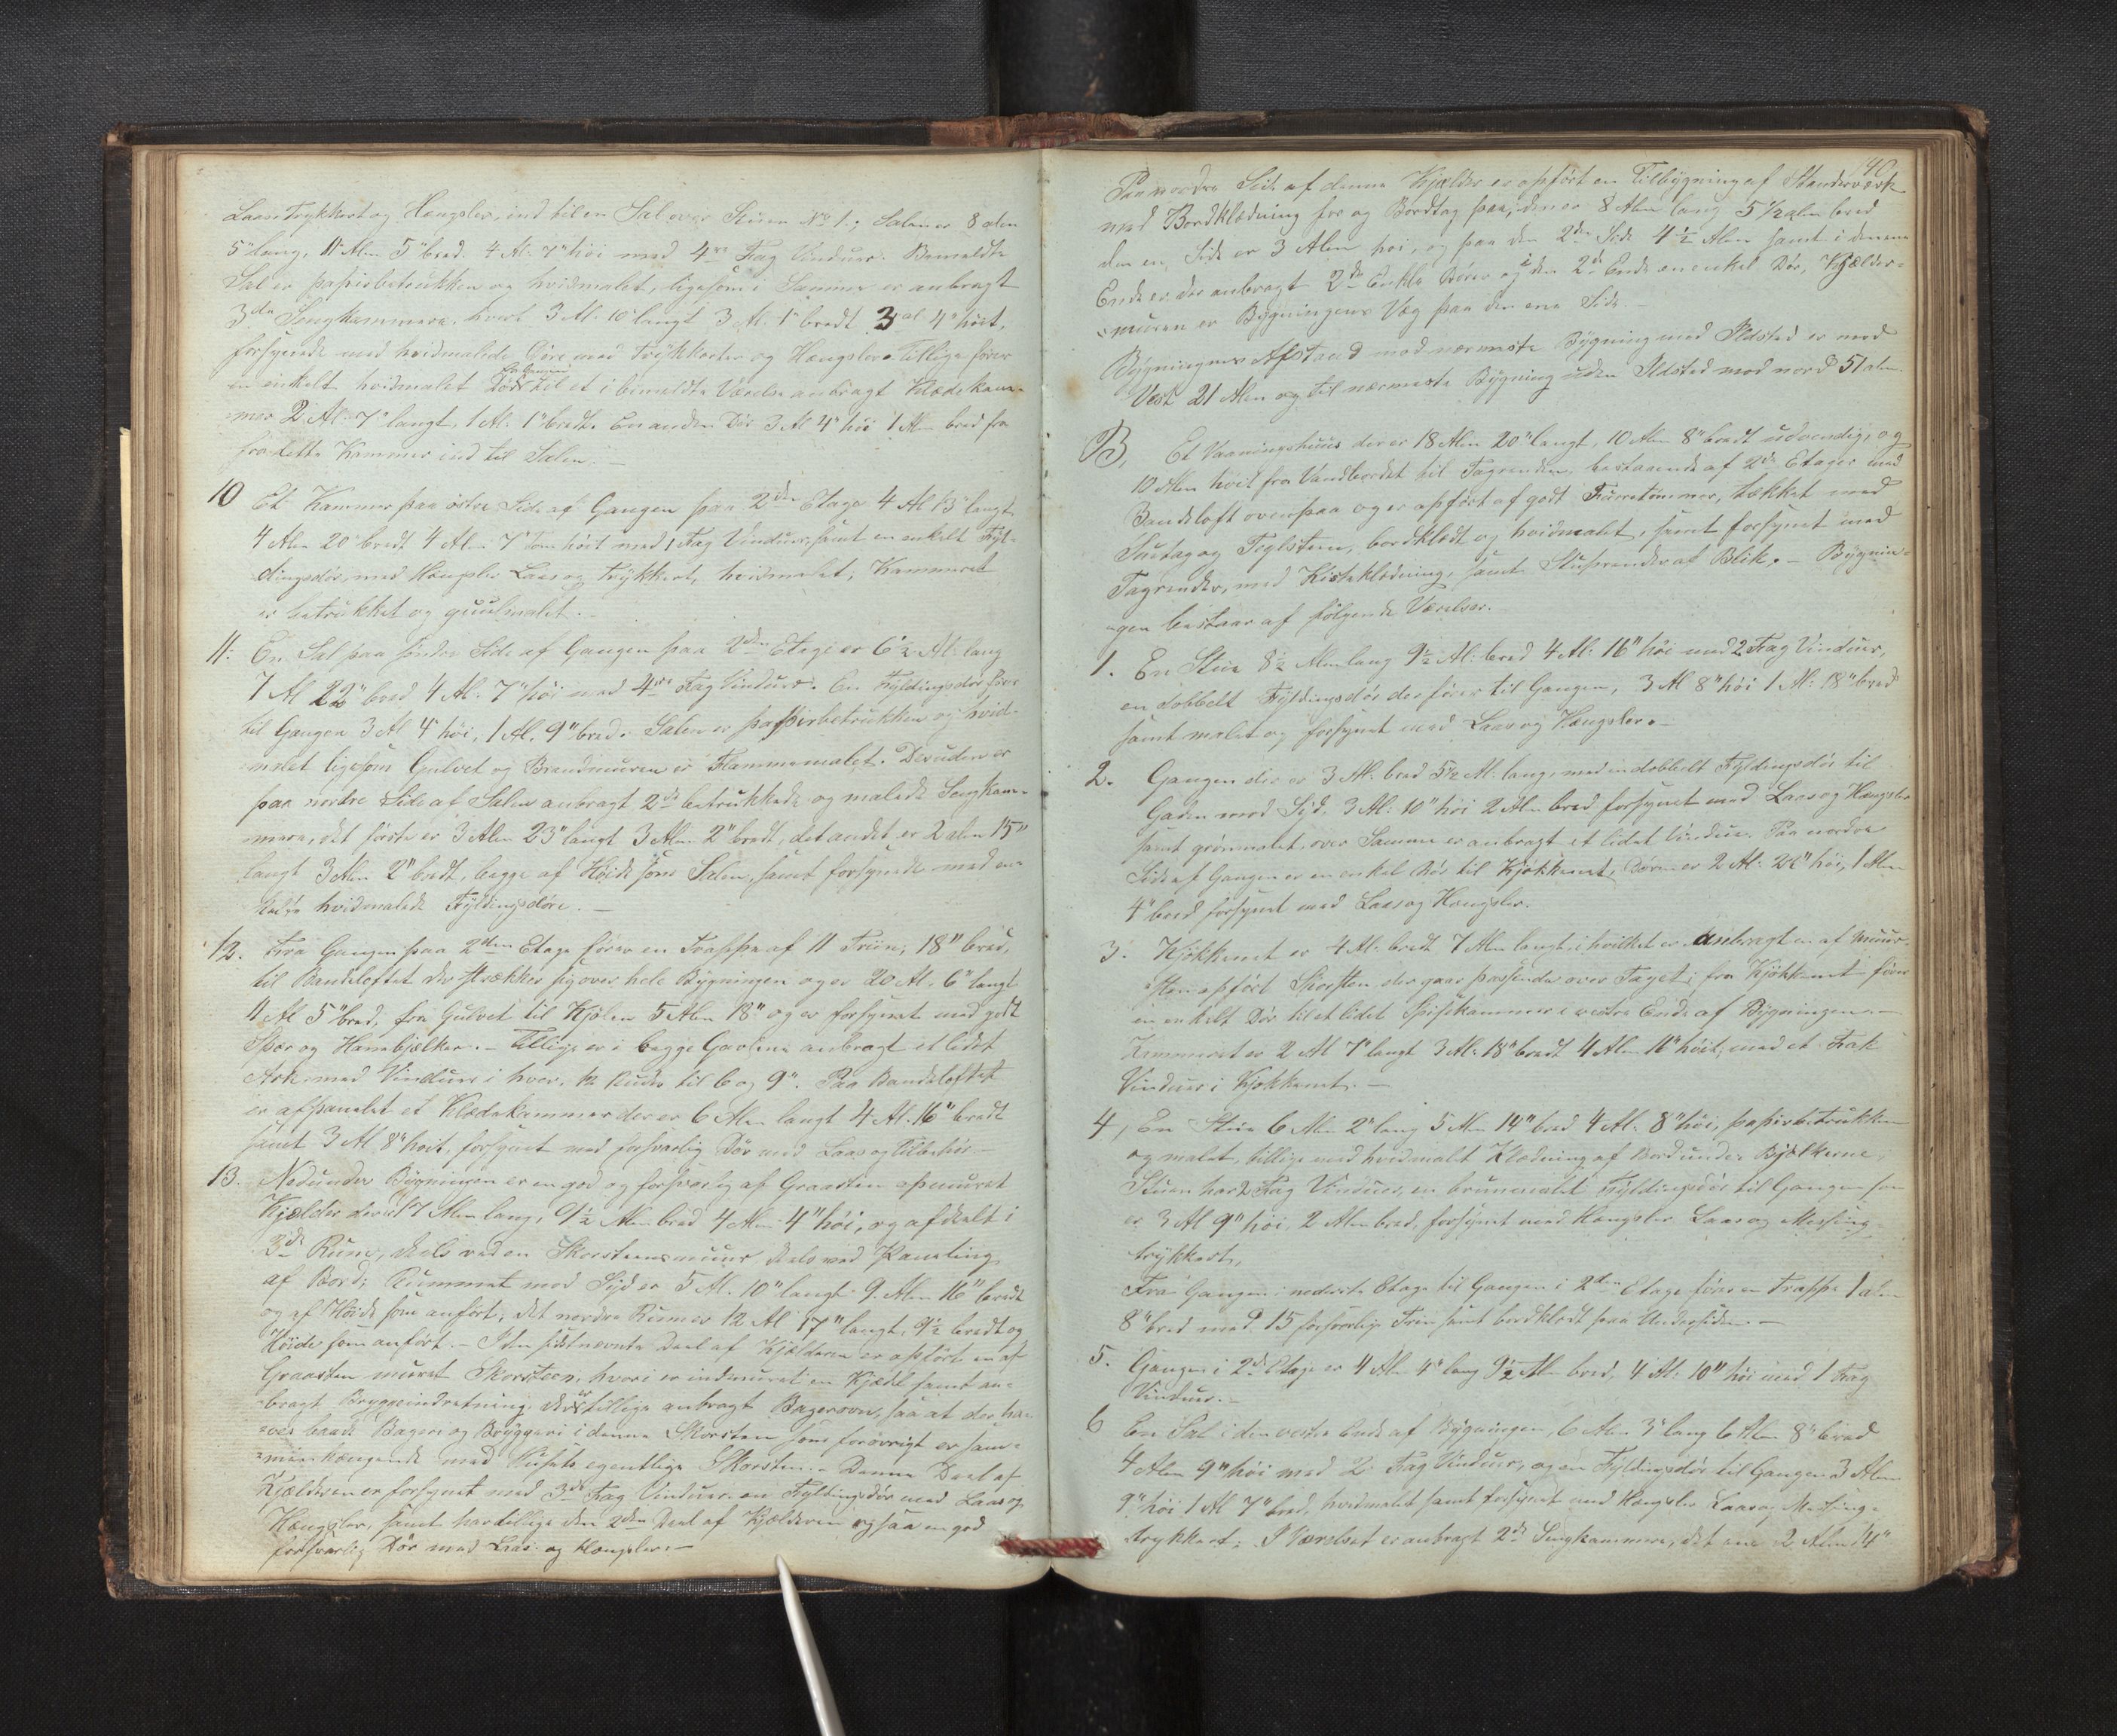 Laase Trykkert og Hængsler, ind til en Sal over Stuen No 1.; Salen er 8 alen
5" lang, 11 Alen 5" bred. 4 Al: 7" höi med 4re Fag Vinduer. Bemeldte
Sal er papirbetrukken og hvidmalet, ligesom i Samme er anbragt
3de Sengkammere, hvert 3 Al: 10" langt 3 Al: 1" bredt 3 al 4" höit,
forsynede med hvidmalede Döre med Trykkerter og Hængsler. Tillige fører
en enkelt hvidmalet Dör fra Gangen til et i bemeldte Værelse anbragt Klædekam-
mer 2 Al: 7" langt, 1 Al: 1" bredt. En anden Dör 3 Al 4" höi 1 Alen bred fra
fra dette Kammer ind til Salen. —
10 Et Kammer paa østre Side af Gangen paa 2den Etage 4 Al 13" langt
4 Alen 20" bredt 4 Alen 7" Tom höit med 1 Fag Vinduer, samt en enkelt Fyl-
dingsdör, med Hængsler Laas og Trykkert, hvidmalet, Kammeret
er betrukket og guulmalet. —
11. En Sal paa søndre Side af Gangen paa 2den Etage er 6 1/2 Al: lang
7 Al 22" bred 4 Al: 7" höi med 4re Fag Vinduer. En Fyldingsdör fører
til Gangen 3 Al 4" höi, 1 Al. 9" bred. Salen er papirbetrukken og hvid-
malet ligesom Gulvet og Brandmuren er Flammemalet. Desuden er
paa nordre Side af Salen anbragt 2de betrukkede og malede Sengkam-
mere, det første er 3 Alen 23" langt 3 Alen 2" bredt, det andet er 2 alen 15"
langt 3 Alen 2" bredt, begge af Höide som Salen, samt forsynede med en-
kelte hvidmalede Fyldingsdöre. —
12. Fra Gangen paa 2den Etage fører en Trappe af 11 Trin, 18" bred,
til Bandeloftet der strækker sig over hele Bygningen og er 20 Al. 6" langt
11 Al 5" bred, fra Gulvet til Kjølen 5 Alen 18" og er forsynet med godt
Spær og Hanebjælker. — Tillige er i begge Gavlene anbragt et lidet
Ark med Vinduer i hver, 12 Ruder til 6 og 9". Paa Bandeloftet
er afpanelet et Klædekammer der er 6 Alen langt 4 Al. 16" bredt
samt 3 Al 8" höit, forsynet med forsvarlig Dör med Laas og Tilbehör —
13. Nedunder Bygningen er en god og forsvarlig af Graasten opmuret
Kjælder der er 17 Alen lang, 9 1/2 Alen bred 4 Alen 4" höi, og afdeelt i
3de Rum, deels ved en Skorsteensmuur deels ved Paneling
af Bord; Rummet mod Syd er 5 Al. 10" langt 9 Alen 16" bredt
og af Höide som anført; det nordre Rum er 12 Al 17" langt, 9 1/2 bredt og
Höide som anført. — I den sidstnevnte Deel af Kjælderen er opført en af
Graasten muret Skorsteen, hvori er indmuret en Kjædel samt an-
bragt Bryggeindretning, der er tillige anbragt Bagerovn, saa at der ha-
ves baade Bageri og Bryggeri i denne Skorsten som forøvrigt er sam-
menhængende med Husets egentlige Skorsten. — Denne Deel af
Kjælderen er forsynet med 3de Fag Vinduer en Fyldingsdör med Laas og
Hængsler, samt har tillige den 2den Deel af Kjælderen ogsaa en god
forsvarlig Dör med Laas og Hængsler. —
40
Paa nordre Side af denne Kjælder er opført en Tilbygning af Standerværk
med Bordklædning for og Bordtag paa; den er 8 Alen lang 5 1/2 alen bred
den en Side er 3 Alen höi, og paa den 2den Side 4 1/2 Alen samt i denene
Ende er der anbragt 2de Enkle Dörer og i den 2de Ende en enkel Dör, Kjælder-
muren er Bygningens Væg paa den ene Side. —
Bygningens Afstand mod nærmeste Bygning med Ildsted er mod
Vest 21 Alen og til nærmeste Bygning uden Ildsted mod nord 51 alen.
B, Et Vaaningshuus der er 18 Alen 20" langt, 10 Alen 8" bredt udvendig, og
10 Alen höit fra Vandbordet til Tagrenden, bestaaende af 2de Etager med
Bandeloft ovenpaa og er opført af godt Furretømmer, tækket med
Suetag og Teglsteen, bordklædt og hvidmalet, samt forsynet med
Tagrender, med Kisteklædning, samt Stuprender af Blik. — Bygnin-
gen bestaar af følgende Værelser. —
1. En Stue 8 1/2 Alen lang 9 1/2 Al: bred 4 Al: 16" höi med 2 Fag Vinduer,
en dobbelt Fyldingsdör der fører til Gangen, 3 Al 8" höi 1 Al: 18" bred
samt malet og forsynet med Laas og Hængsler. —
2. Gangen der er 3 Al: bred 5 1/2 Al: lang, med en dobbelt Fyldingsdör til
Gaden mod Syd, 3 Al: 10" höi 2 Alen bred forsynet med Laas og Hængsler
samt grønmalet, over Samme er anbragt et lidet Vindue. Paa nordre
Side af Gangen er en enkel Dör til Kjøkkenet, Dören er 2 Al: 22" höi, 1 Alen
4" bred forsynet med Laas og Hængsler.
3. Kjøkkenet er 4 Al: bredt 7 Alen langt, i hvilket er anbragt en af Muur-
steen opført Skorsten der gaar passende over Taget; fra Kjøkkenet fører
en enkelt Dör til et lidet Spisekammer i vestre Ende af Bygningen. —
Kammeret er 2 Al 7" langt 3 Al: 18" bredt 4 Alen 16" höit, med et Fak
Vinduer i Kjøkkenet. —
4, En Stue 6 Alen 2" lang 5 Alen 14" bred 4 Al: 8" höi, papirbetrukken
og malet, tillige med hvidmalt Klædning af Bord under Bjelkerne,
Stuen har 2 Fag Vinduer, en bruunmalet Fyldingsdör til Gangen som
er 3 Al 9" höi, 2 Alen bred, forsynet med Hængsler Laas og Messing-
trykkert,
Fra Gangen i nederste Etage til Gangen i 2den Etage fører en Trappe 1 alen
8" bred med 15 forsvarlige Trin samt bordklædt paa Undersiden. —
5. Gangen i 2de Etage er 4 Alen 4" lang 9 1/2 Alen bred, 4 Al: 10" höi med 1 Fag
Vinduer. —
6 En Sal i den vestre Ende af Bygningen, 6 Alen 3" lang 6 Alen 8" bred
4 Alen 9" höi med 2 Fag Vinduer, og en Fyldingsdör til Gangen 3 Alen
9" höi 1 Al 7" bred, hvidmalet samt forsynet med Hængsler Laas og Messing-
trykkert; I Værelset er anbragt 2de Sengkammere, det ene 2 Alen 14"